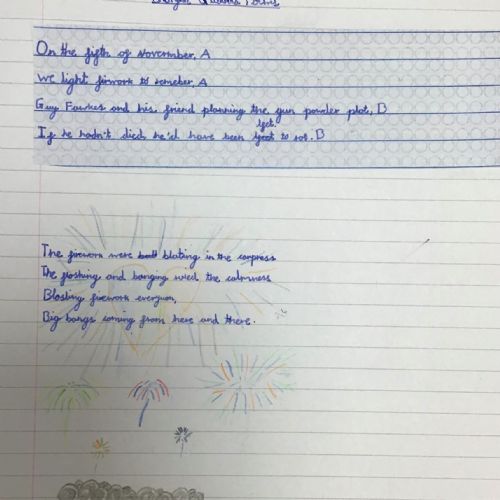 Poems
On the fifth of november, A
We light firework to remeber, A
Guy Fawkes and his friend planning the gun powder plot, B
left
If he hadn't died he'd have been to rot. B
The firework were blating in the
The floshing and banging the calmness
Blasting firework everyion,
Big bangs coming from here and there.